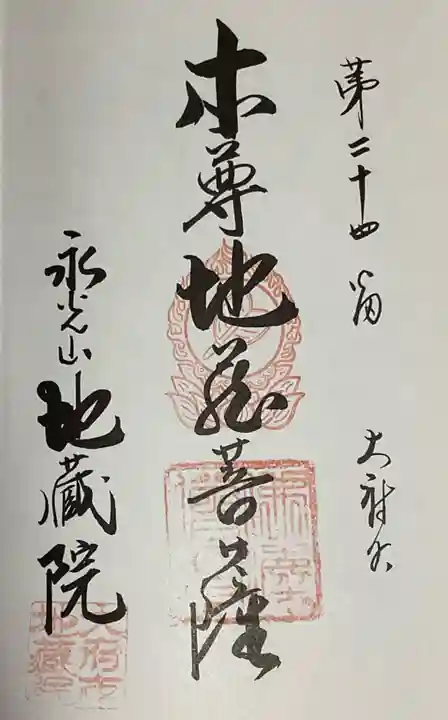 第二十四番
大府市
本尊地蔵菩薩
永光山地蔵院